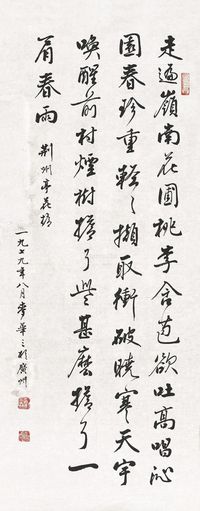 走遍嶺南花圃桃李含苞欲吐高唱沁
園春珍重輕々擷取衝破曉寒天宇
喚醒前村煙樹誰了些甚麼誰了一
肩春雨
荆州亭
一九七九年八月李華之於廣州